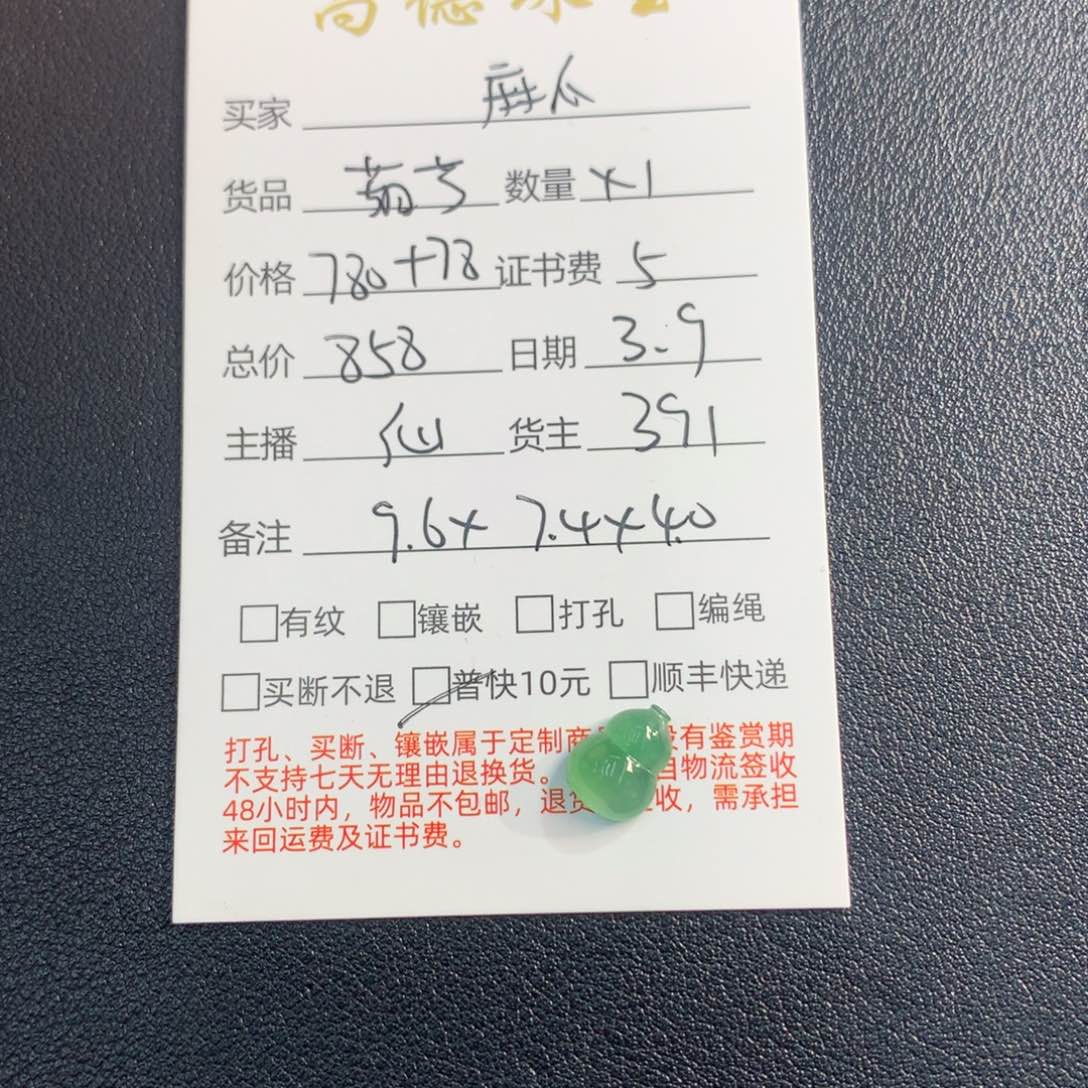 买家 麻瓜
货品 葫芦 数量 x1
价格 780+78 证书费 5
总价 858 日期 3.9
主播 仙 货主 391
备注 9.6x7.4x4.0
□有纹 □镶嵌 □打孔 □编绳
□买断不退 □普快10元 □顺丰快递
打孔、买断、镶嵌属于定制商 有鉴赏期
不支持七天无理由退换货。 物流签收
48小时内，物品不包邮，退 收，需承担
来回运费及证书费。